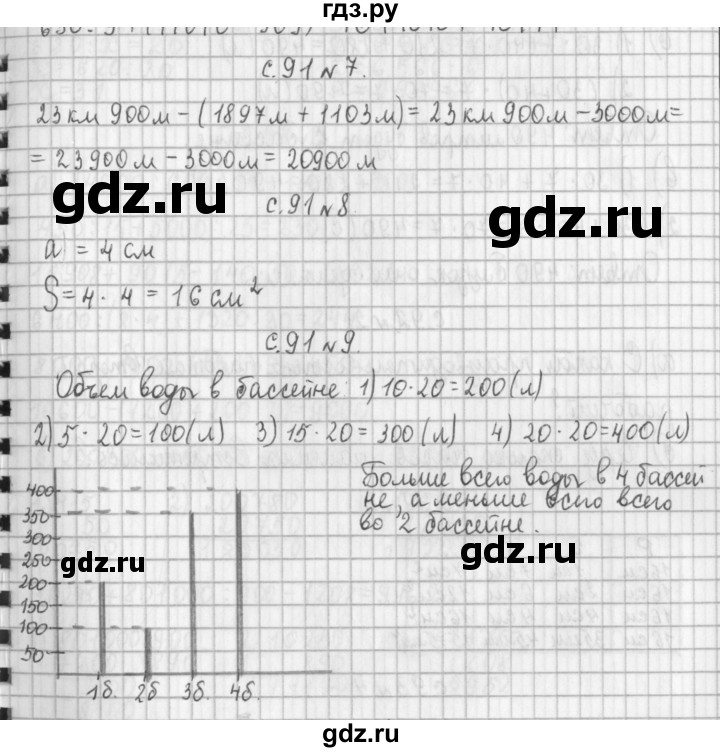 гдз.ру
с.91 №7.
23 км 900м – (1897м + 1103м) = 23 км 900м – 3000м =
= 23900м – 3000м = 20900 м
gdz.ru
с.91 №8.
gdz.ru
a = 4 см
S = 4 · 4 = 16 см²
с.91 №9.
Объем воды в бассейне: 1) 10·20=200(л)
2) 5·20=100(л) 3) 15·20=300(л) 4) 20·20=400(л)
Больше всего воды в 4 бассей
не, а меньше всего всего
во 2 бассейне.
gdz.ru
gdz.ru
400
350
300
250
200
150
100
50
1б. 2б 3б. 4б.
gdz.ru